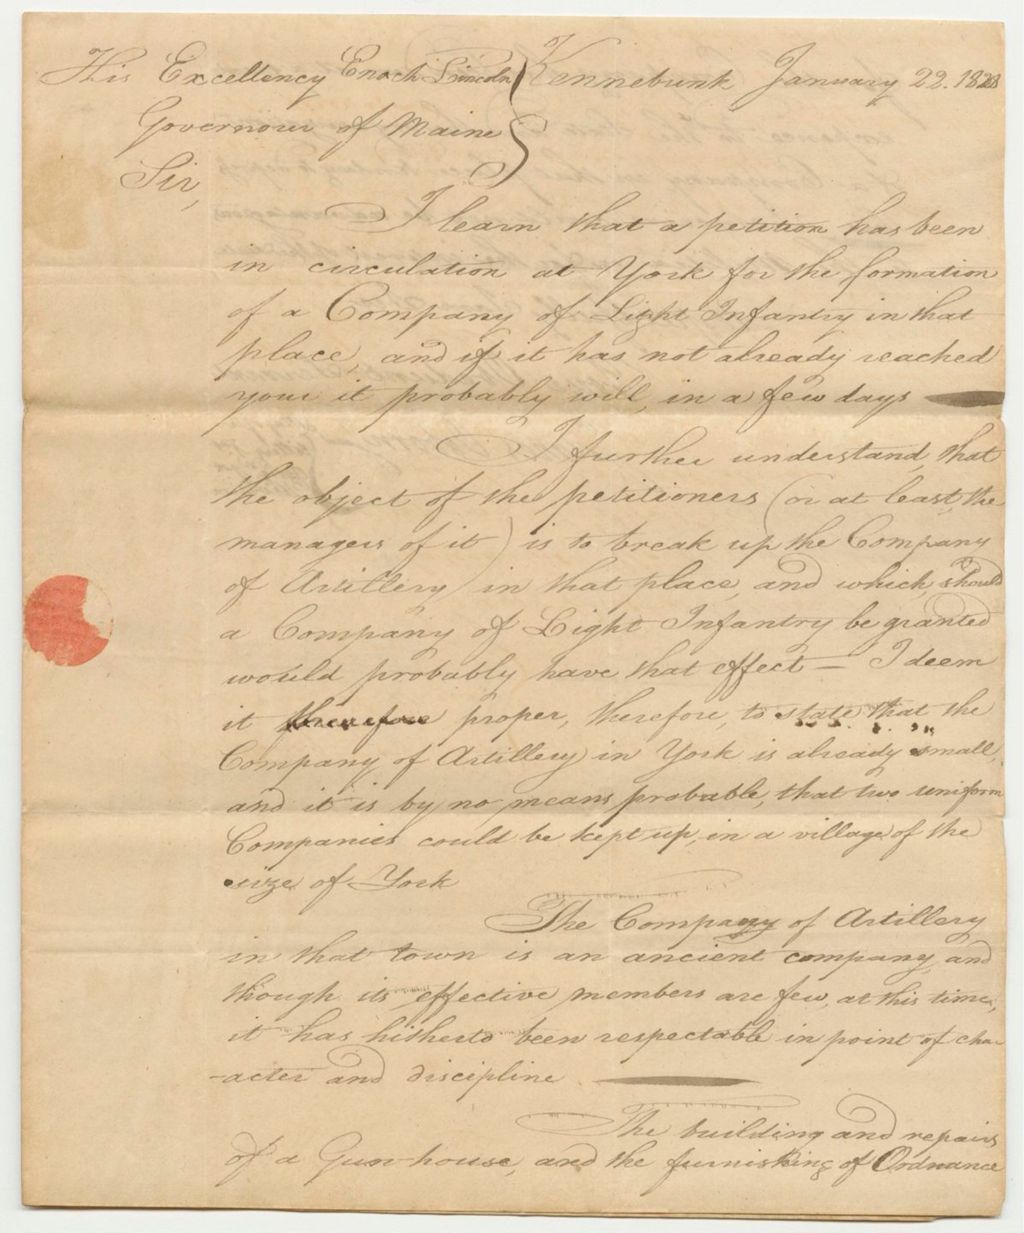 His Excellency Enoch Lincoln Kennebunk January 22. 1828
Governour of Maine
Sir,
I learn that a petition has been
in circulation at York for the formation
of a Company of Light Infantry in that
place, and if it has not already reached
your it probably will, in a few days
I further understand, that
the object of the petitioners (or at least the
managers of it) is to break up the Company
of Artillery in that place, and which should
a Company of Light Infantry be granted
would probably have that effect — I deem
it therefore proper, therefore, to state that the
Company of Artillery in York is already small,
and it is by no means probable, that two uniform
Companies could be kept up, in a village of the
size of York
The Company of Artillery
in that town is an ancient company, and
though its effective members are few, at this time,
it has hitherto been respectable in point of char
-acter and discipline
The building and repairs
of a Gun-house, and the furnishing of Ordnance